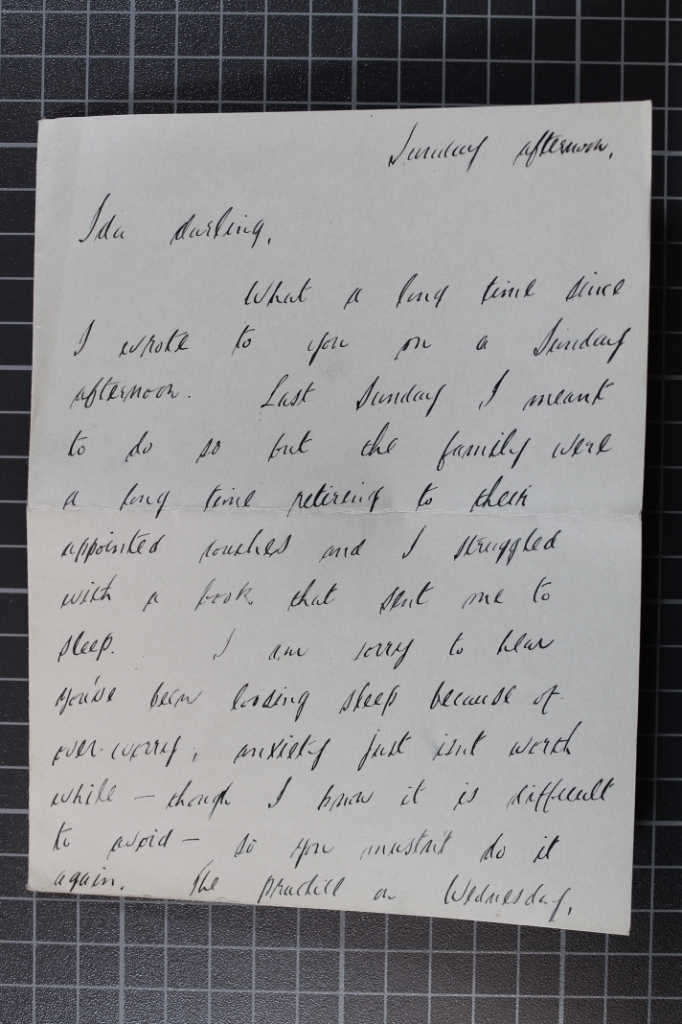 Sunday afternoon.
Ida darling,
What a long time since
I wrote to you on a Sunday
afternoon. Last Sunday I meant
to do so but the family were
a long time retiring to their
appointed couches and I struggled
with a book that sent me to
sleep. I am sorry to hear
you've been loosing sleep because of
over-worry, anxiety just isnt worth
while — though I know it is difficult
to avoid — so you mustn't do it
again. The practice on Wednesday,